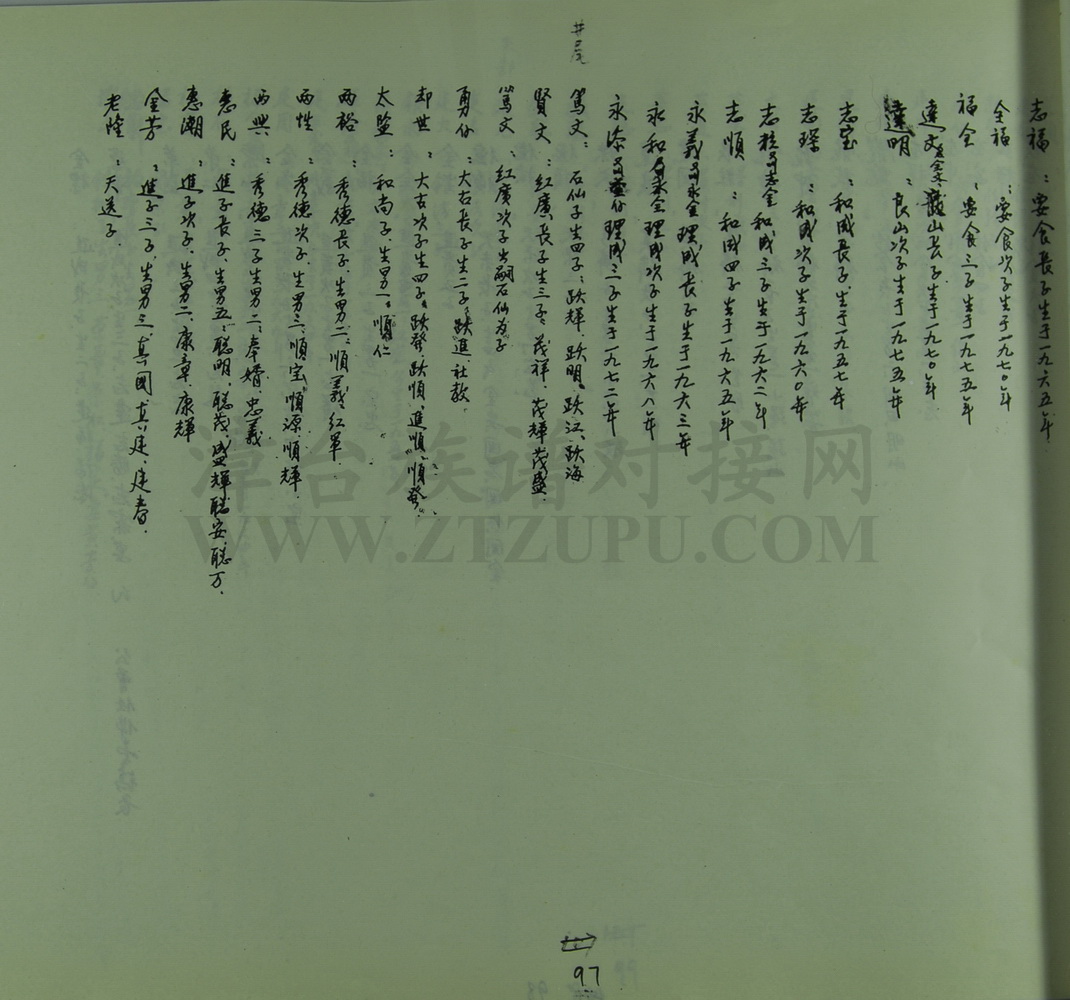 志福：安食長子生于一九六五年
全福：安食次子生于一九七〇年
福全：安食三子生于一九七五年
達文 山長子生于一九七〇年
達明：良山次子生于一九七五年
志宝：和成長子．生于一九五七年
志琛：和成次子生于一九六〇年
志 又号志金 和成三子生于一九六二年
志順：和成四子生于一九六五年
永義又号永金 理成長子生于一九六三年
永和又号永全 理成次子生于一九六八年
永添 理成三子生于一九七二年
井尾
篤文：石仙子生四子：跃輝．跃明．跃江、跃海
賢文：紅廣長子生三子：茂祥．茂輝茂盛．
篤文：紅廣次子出嗣石仙為子
勇份：大古長子生二子：跃進．社教．
却世：大古次子生四子：跃發．跃順．進順．順發．
太监：和尚子．生男一：順仁
両裕：秀德長子．生男二：順義．紅軍．
両性：秀德次子．生男三：順宝．順源．順輝．
両興：秀德三子生男二：奉婿．忠義
惠民：進子長子．生男五：聪明．聪茂．盛輝聪安．聪万．
惠潮：進子次子．生男二．康章．康輝
金芳：進子三子．生男三．真國．真廷．廷春．
老隆：天送子．
97
漳台族谱对接网
WWW.ZTZUPU.COM